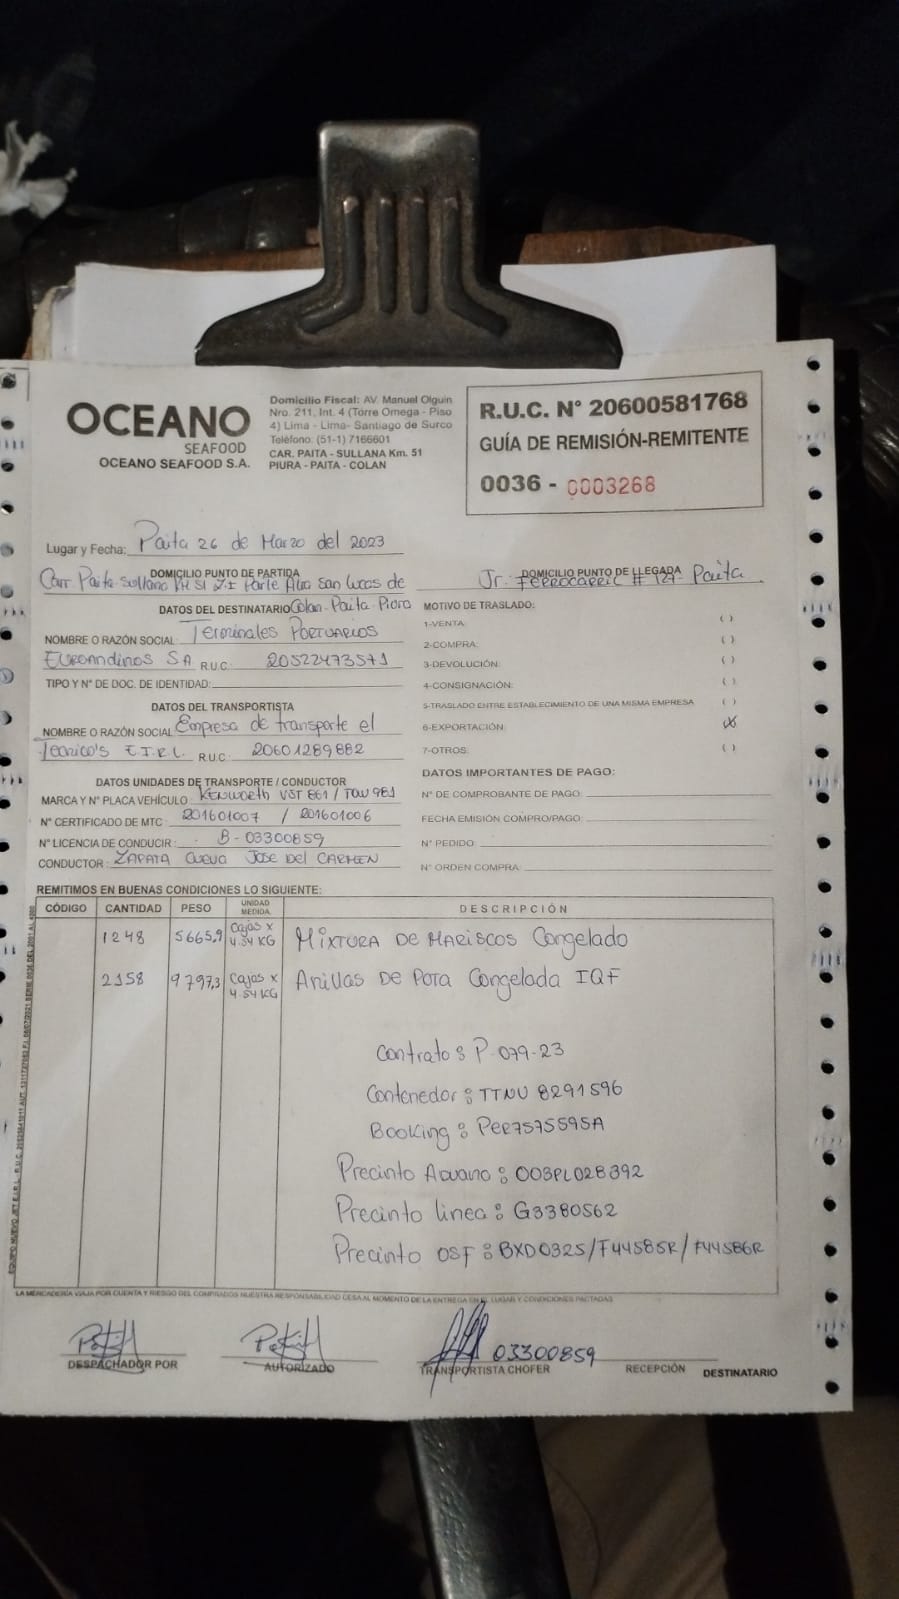 OCEANO
SEAFOOD
OCEANO SEAFOOD S.A.
Domicilio Fiscal: AV. Manuel Olguin
Nro. 211, Int. 4 (Torre Omega - Piso
4) Lima - Lima- Santiago de Surco
Teléfono: (51-1) 7166601
CAR. PAITA - SULLANA Km. 51
PIURA - PAITA - COLAN
R.U.C. N° 20600581768
GUÍA DE REMISIÓN-REMITENTE
0036 - 0003268
Lugar y Fecha: Paita 26 de Marzo del 2023
DOMICILIO PUNTO DE PARTIDA
Carr Paita-Sullana KM 51 Z.I Parte Alta San Lucas de
Colan-Paita-Piura
DOMICILIO PUNTO DE LLEGADA
Jr. Ferrocarril # 127- Paita
DATOS DEL DESTINATARIO
NOMBRE O RAZÓN SOCIAL: Terminales Portuarios
Euroandinos SA R.U.C: 20522473571
TIPO Y N° DE DOC. DE IDENTIDAD:
DATOS DEL TRANSPORTISTA
NOMBRE O RAZÓN SOCIAL Empresa de transporte el
Tecnico's E.I.R.L. R.U.C: 20601289882
DATOS UNIDADES DE TRANSPORTE / CONDUCTOR
MARCA Y N° PLACA VEHÍCULO: Kenworth
N° CERTIFICADO DE MTC: 201601007 / 201601006
N° LICENCIA DE CONDUCIR: B-03300859
CONDUCTOR: ZAPATA Cueva Jose Del CARMEN
MOTIVO DE TRASLADO:
1-VENTA: ( )
2-COMPRA: ( )
3-DEVOLUCIÓN: ( )
4-CONSIGNACIÓN: ( )
5-TRASLADO ENTRE ESTABLECIMIENTO DE UNA MISMA EMPRESA ( )
6-EXPORTACIÓN: (X)
7-OTROS: ( )
DATOS IMPORTANTES DE PAGO:
N° DE COMPROBANTE DE PAGO:
FECHA EMISIÓN COMPRO/PAGO:
N° PEDIDO:
N° ORDEN COMPRA:
REMITIMOS EN BUENAS CONDICIONES LO SIGUIENTE:
CÓDIGO CANTIDAD PESO UNIDAD MEDIDA DESCRIPCIÓN
1248 5665,9 Cajas x 4.54 KG Mixtura De Mariscos Congelado
2158 9797,3 Cajas x 4.54 KG Anillas De Pota Congelada IQF
Contrato: P-079-23
Contenedor: TTNU 8291596
Booking: PER7575595A
Precinto Aduano: 003PL028392
Precinto linea: G3380562
Precinto OSF: BXD0325/F44585R/F44586R
LA MERCADERÍA VIAJA POR CUENTA Y RIESGO DEL COMPRADOR NUESTRA RESPONSABILIDAD CESA AL MOMENTO DE LA ENTREGA EN EL LUGAR Y CONDICIONES PACTADAS
03300859
DESPACHADOR POR
AUTORIZADO
TRANSPORTISTA CHOFER
RECEPCIÓN
DESTINATARIO